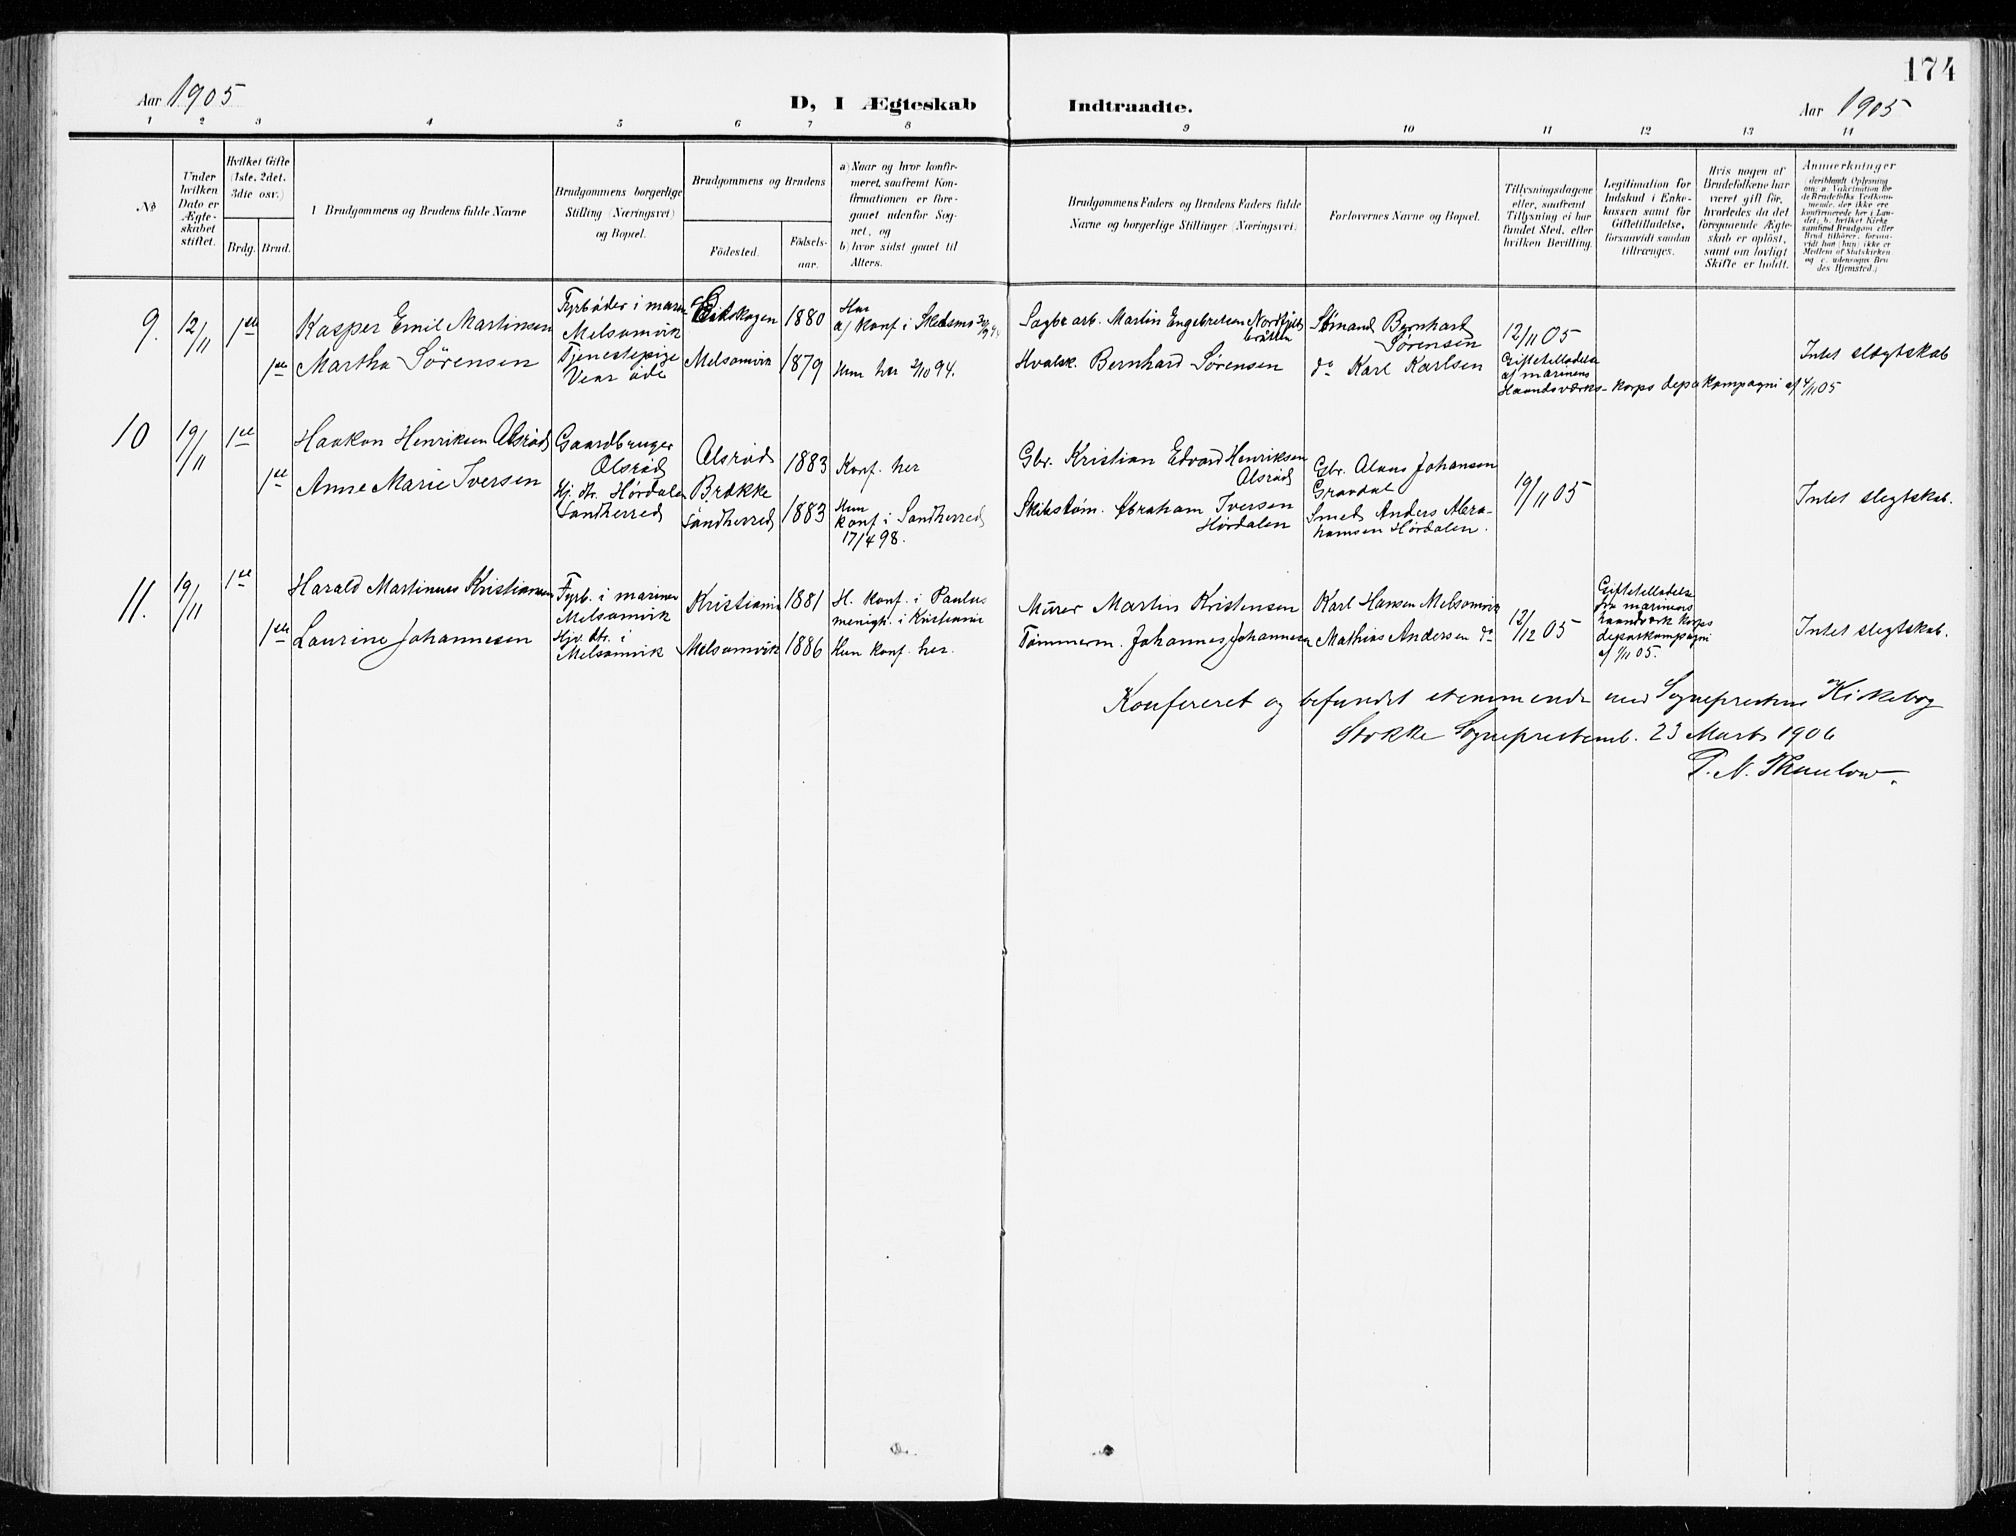 174
Aar 1905
D, I Ægteskab Indtraadte.
Aar 1905
1 2 3 4 5 6 7 8 9 10 11 12 13 14
No
Under hvilken Dato er Ægteskabet stiftet.
Hvilket Gifte (1ste, 2det, 3die osv.)
Brdg. Brud.
1 Brudgommens og Brudens fulde Navne
Brudgommens borgerlige Stilling (Næringsvei) og Bopæl.
Brudgommens og Brudens
Födested. Födselsaar.
a) Naar og hvor konfirmeret, saafremt Konfirmationen er foregaaet udenfor Sognet, og
b) hvor sidst gaaet til Alters.
Brudgommens Faders og Brudens Faders fulde Navne og borgerlige Stillinger (Næringsvei)
Forlovernes Navne og Bopæl.
Tillysningsdagene eller, saafremt Tillysning ei har fundet Sted, efter hvilken Bevilling.
Legitimation for Indskud i Enkekassen samt for Giftetilladelse, forsaavidt saadan tiltrænges.
Hvis nogen af Brudefolkene har været gift för, hvorledes da det foregaaende Ægteskab er oplöst, samt om lovligt Skifte er holdt.
Anmerkninger (deriblandt Oplysning om: a. Vakcination for de Brudefolks Vedkommende, der ikke ere konfirmerede her i Landet; b. hvilket Kirkesamfund Brudgom eller Brud tilhörer, forsaavidt han (hun) ikke er Medlem af Statskirken og c. udensogns Brudes Hjemsted.)
9. 12/11 1ste Kasper Emil Martinsen
Fyrbøder i marin Melsomvik
1880
Han a) Konf i Skedsmo
Sagbr arb. Martin Engebretsen
Sömand Bernhard Sörensen
12/11 05
1ste Martha Sörensen
Tjenestepige Vear
Melsomvik 1879
Hun her 2/10 94.
Hvalsk. Bernhard Sörensen
do Karl Karlsen
Giftetilladelse af marinens Haandsværks-korps depotkompagni af 4/11 05
Intet slægtskab
10 19/11 1ste Haakon Henriksen Olsröd
Gaardbruger Olsröd
Olsröd 1883 Konf. her
Gbr. Kristian Edvard Henriksen Olsröd
Gbr. Olaus Johansen Gravdal
19/11 05
1ste Anne Marie Iversen
Hj. dtr. Hørdalen Sandherred
Brække Sandherred 1883
Hun konf i Sandherred 17/4 98.
Skibstöm. Abraham Iversen Hørdalen
Smed Anders Abrahamsen Hørdalen.
Intet slegtskab.
11. 19/11 1ste Harald Martinius Kristiansen
Fyrb. i marinen Melsomvik
Kristiania 1881
H. Konf. i Paulus menigh. i Kristiania
Murer Martin Kristensen
Karl Hansen Melsomvik
12/12 05
Giftetilladelse fra marinens haandværk korps depotkompagni af 1/11 05.
1ste Laurine Johannesen
Hjv. dtr. i Melsomvik
Melsomvik 1886 Hun konf. her.
Tømmerm. Johannes Johannesen
Mathias Andersen do
Intet slegtskab.
Konfereret og befundet stemmende med Sogneprestens Kirkebog
Stokke Sogneprestemb. 23 Marts 1906
P. N. Thaulow.